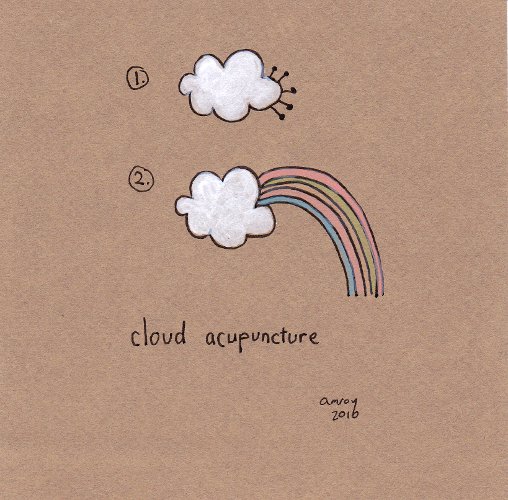 1.
2.
cloud acupuncture
amroy
2016